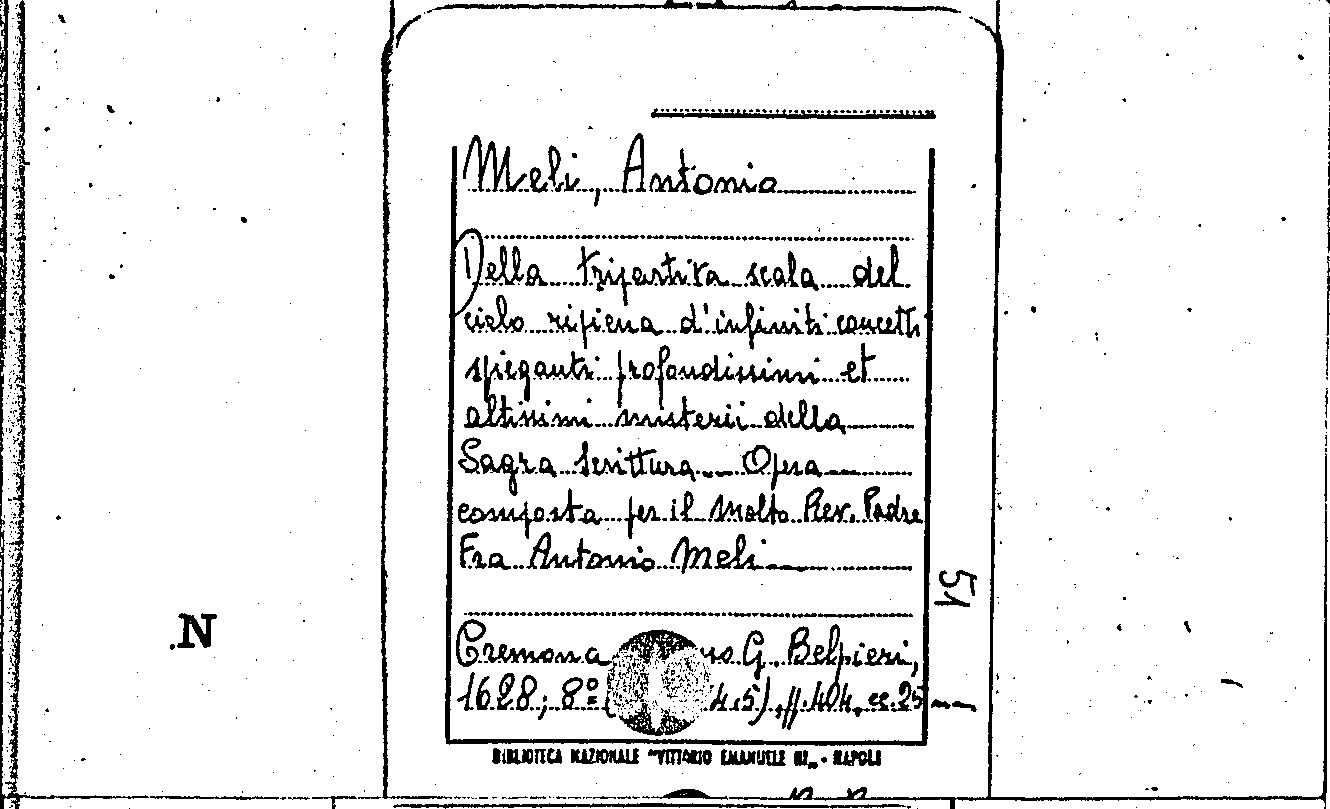 Meli, Antonio
Della tripartita scala del
cielo ripiena d'infiniti concetti
spieganti profondissimi et
altissimi misterii della
Sagra Scrittura... Opera...
composta per il Molto Rev. Padre
Fra Antonio Meli...
51
N
Cremona G. Belpieri,
1628; 8º 4.5), pp. 404, cc. 25 nn
BIBLIOTECA NAZIONALE "VITTORIO EMANUELE III" - NAPOLI